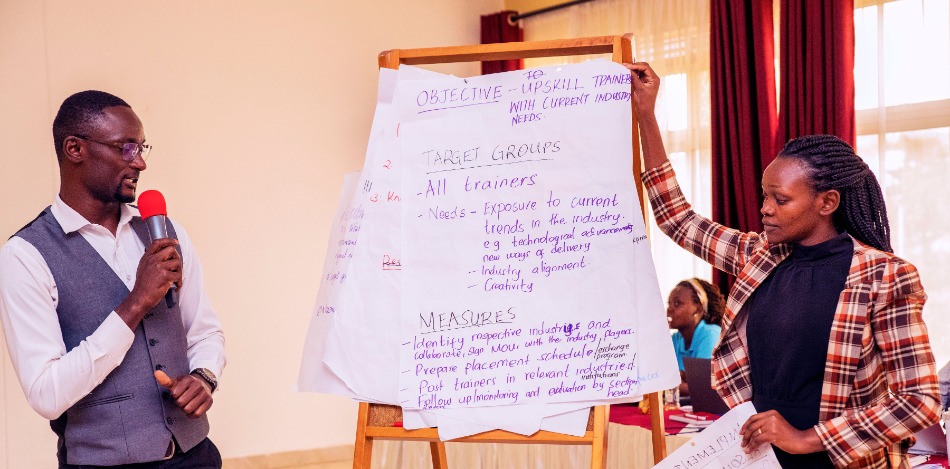 TO
OBJECTIVE - UPSKILL TRAINERS
WITH CURRENT INDUSTRY
NEEDS.
TARGET GROUPS
- All trainers
- Needs - Exposure to current
trends in the industry.
e.g technological advancements
new ways of delivery
- Industry alignment.
- Creativity
MEASURES
- Identify respective industries and
collaborate, sign MOU with the industry players.
- Prepare placement schedule, exchange
program
Post trainers in relevant industries/
institutions
Follow up/monitoring and evaluation by section
head
2
3: Kn